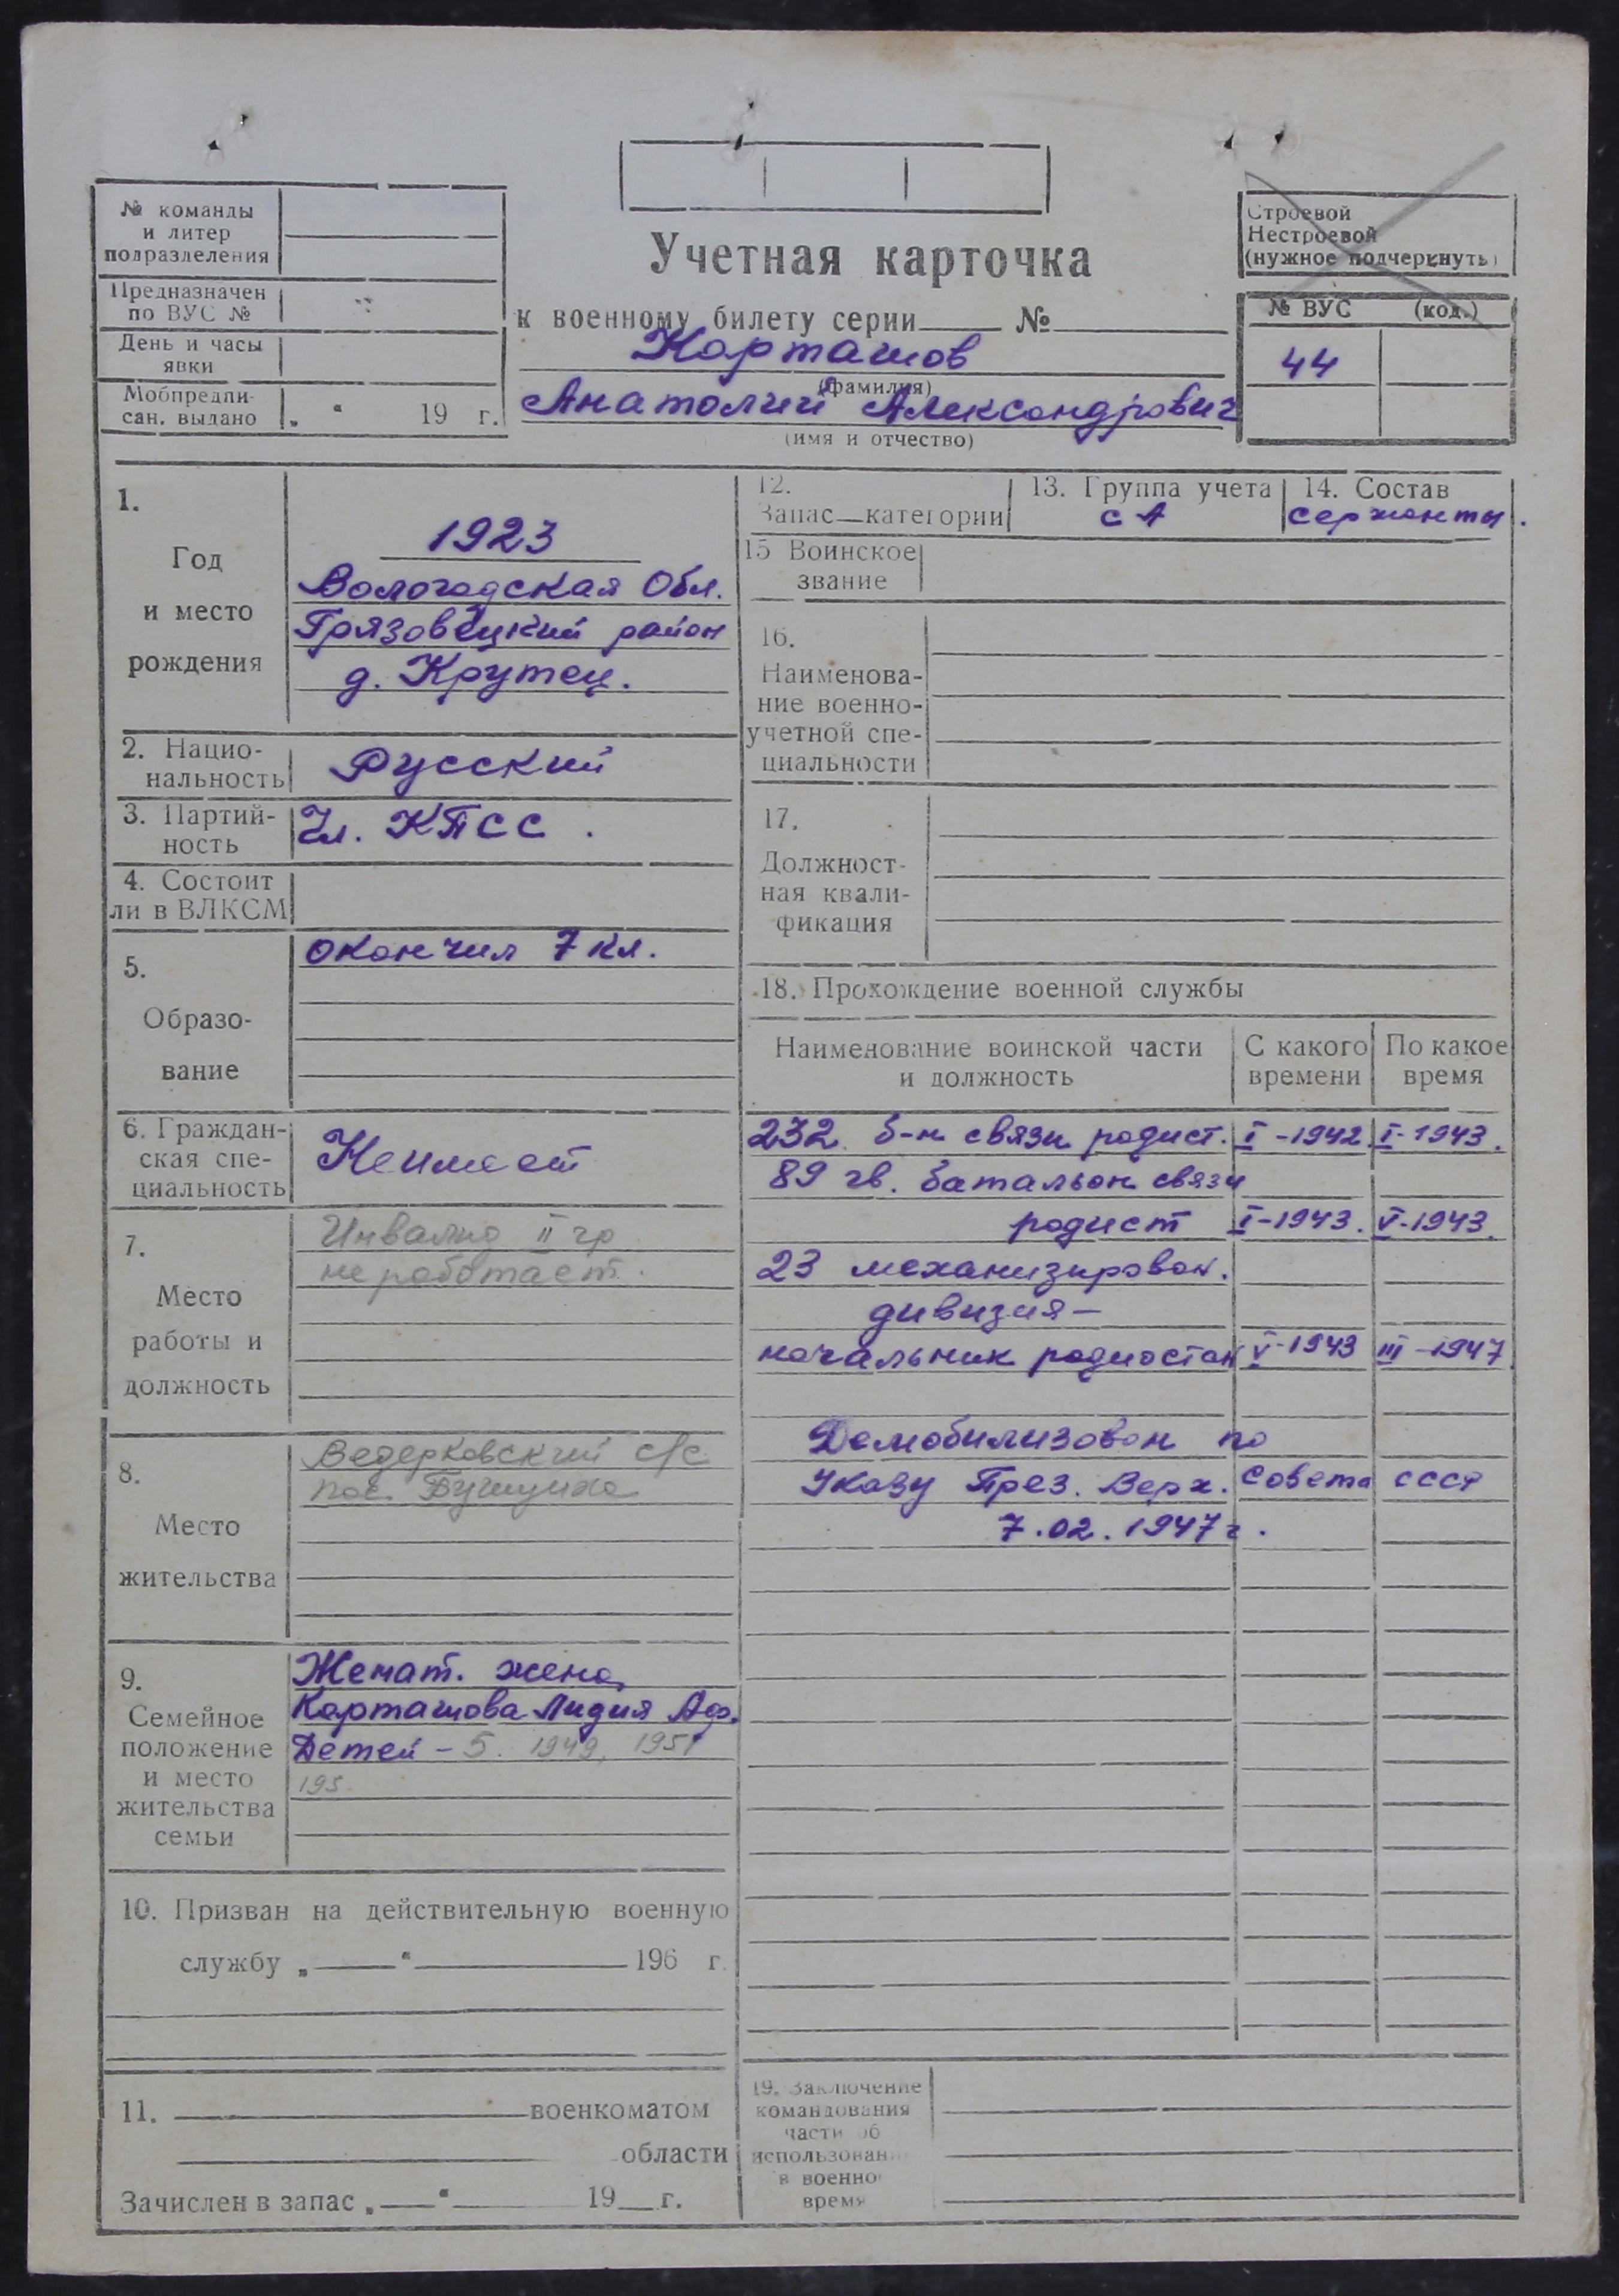 № команды
и литер
подразделения
Предназначен
по ВУС №
День и часы
явки
Мобпредпи-
сан. выдано „ “ 19 г.
Учетная карточка
к военному билету серии № 
Карташов
(фамилия)
Анатолий Александрович
(имя и отчество)
Строевой
Нестроевой
(нужное подчеркнуть)
№ ВУС (код.)
44
1.
Год
и место
рождения
1923
Вологодская Обл.
Грязовецкий район
д. Крутец.
2. Нацио-
нальность
Русский
3. Партий-
ность
Чл. КПСС.
4. Состоит
ли в ВЛКСМ
5.
Образо-
вание
окончил 7 кл.
6. Граждан-
ская спе-
циальность
Неимеет
7.
Место
работы и
должность
Инвалид II гр
не работает.
8.
Место
жительства
Ведерковский с/с
пос.
9.
Семейное
положение
и место
жительства
семьи
Женат. жена
Карташова Лидия
Детей – 5. 1949, 1951
195
10. Призван на действительную военную
службу „ “ 196 г.
11. военкоматом
области
Зачислен в запас „ “ 19 г.
12.
Запас—категории
13. Группа учета
СА
14. Состав
сержанты.
15 Воинское
звание
16.
Наименова-
ние военно-
учетной спе-
циальности
17.
Должност-
ная квали-
фикация
18. Прохождение военной службы
Наименование воинской части
и должность
С какого
времени
По какое
время
232 б-н связи радист. I-1942 I-1943.
89 гв. батальон связи
радист I-1943. V-1943.
23 механизирован.
дивизия –
начальник радиостан V-1943 III-1947
Демобилизован по
Указу През. Верх. Совета СССР
7.02.1947г.
19. Заключение
командования
части об
использован
в военно
время